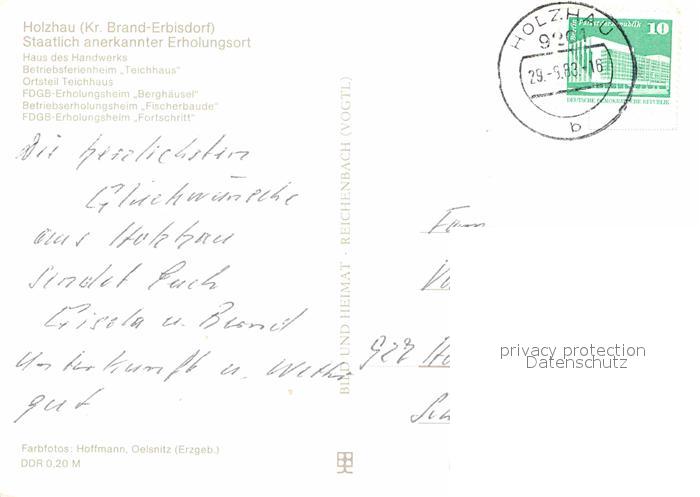 Holzhau (Kr. Brand-Erbisdorf)
Staatlich anerkannter Erholungsort
Haus des Handwerks
Betriebsferienheim „Teichhaus"
Ortsteil Teichhaus
FDGB-Erholungsheim „Berghäusel"
Betriebserholungsheim „Fischerbaude"
FDGB-Erholungsheim „Fortschritt"
Die herzlichsten
Glückwünsche
aus Holzhau
sendet Euch
Gisela u. Bernd
Unterkunft u. Wetter
gut
Farbfotos: Hoffmann, Oelsnitz (Erzgeb.)
DDR 0,20 M
BILD UND HEIMAT · REICHENBACH (VOGTL)
HOLZHAU
9201
29.-6.83.-16
b
Palast der Republik
10
DEUTSCHE DEMOKRATISCHE REPUBLIK
Fam
927 Ha
privacy protection
Datenschutz